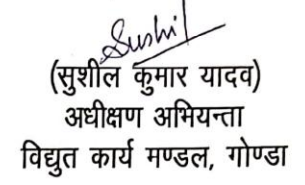 Sushil
(सुशील कुमार यादव)
अधीक्षण अभियन्ता
विद्युत कार्य मण्डल, गोण्डा